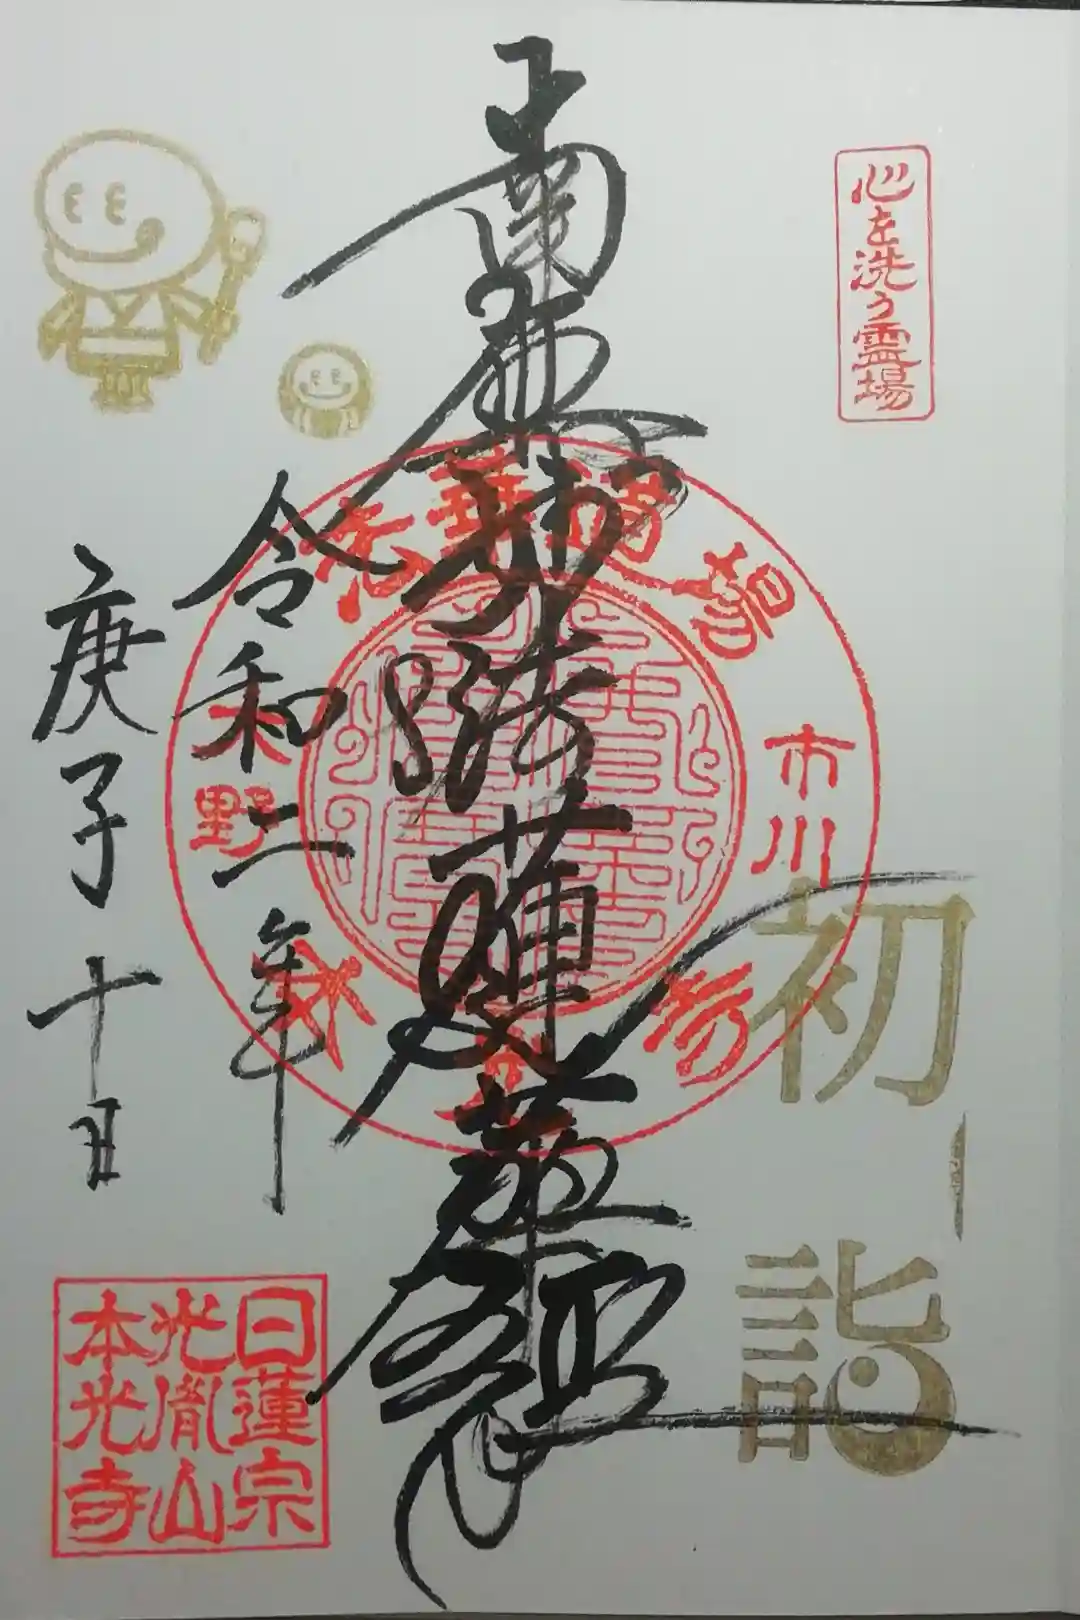 心を洗う霊場
初詣
南無妙法蓮華経
令和二年
庚子十日
市川
大野
日蓮宗
光胤山
本光寺